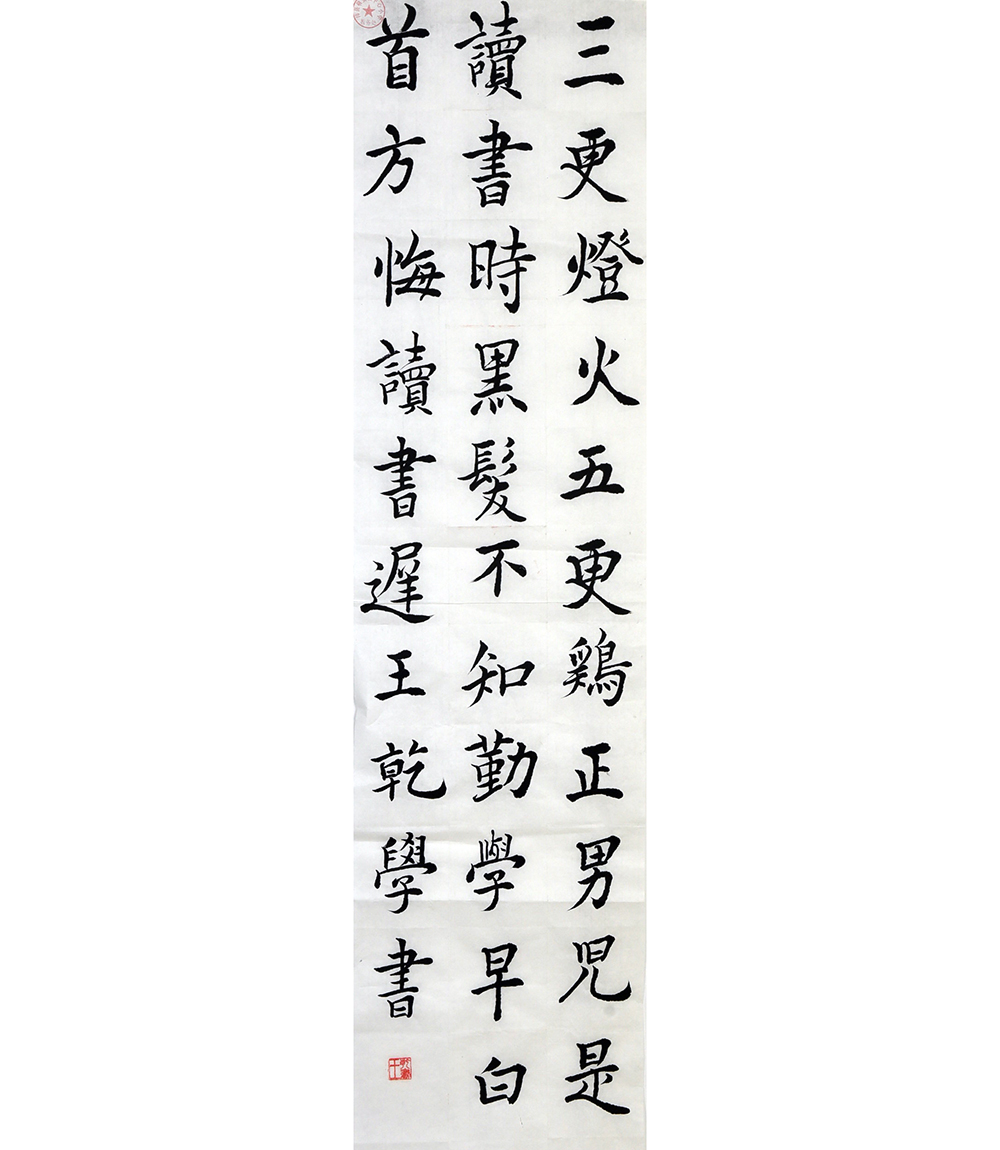 三更燈火五更鶏正男児是
讀書時黒髮不知勤學早白
首方悔讀書遲王乾學書